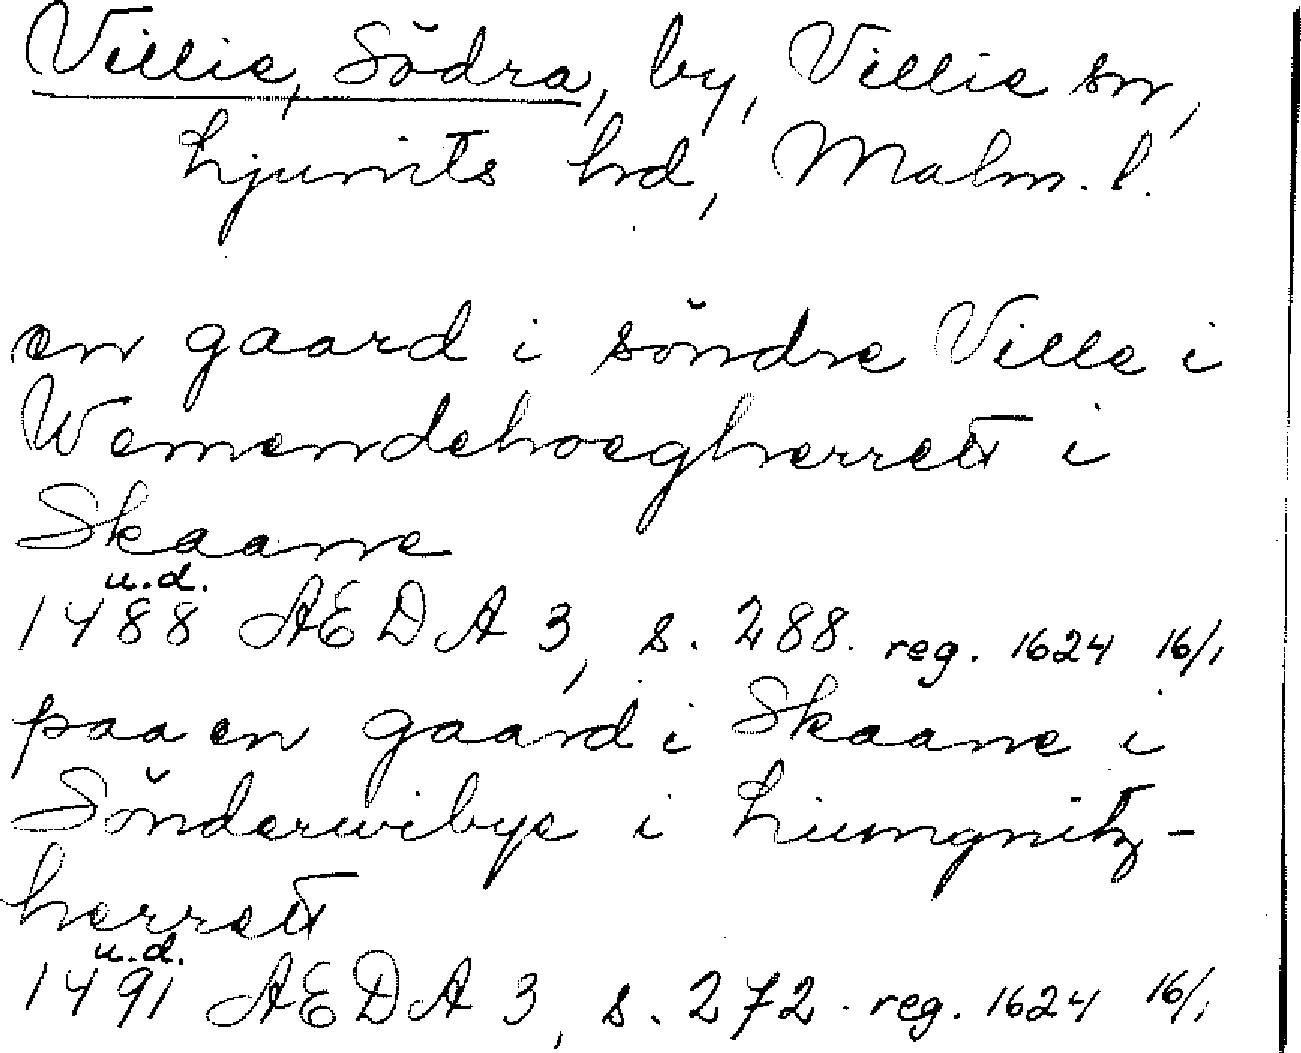 Villie, Södra, by, Villie sn,
Ljunits hd, Malm. l.
en gaard i söndre Ville i
Wemendehoegherrett i
Skaane
u.d.
1488 AEDA 3, s. 288. reg. 1624 16/1
paa en gaard i Skaane i
Sönderwibye i Liungnitz-
herrett
u.d.
1491 AEDA 3, s. 272. reg. 1624 16/1